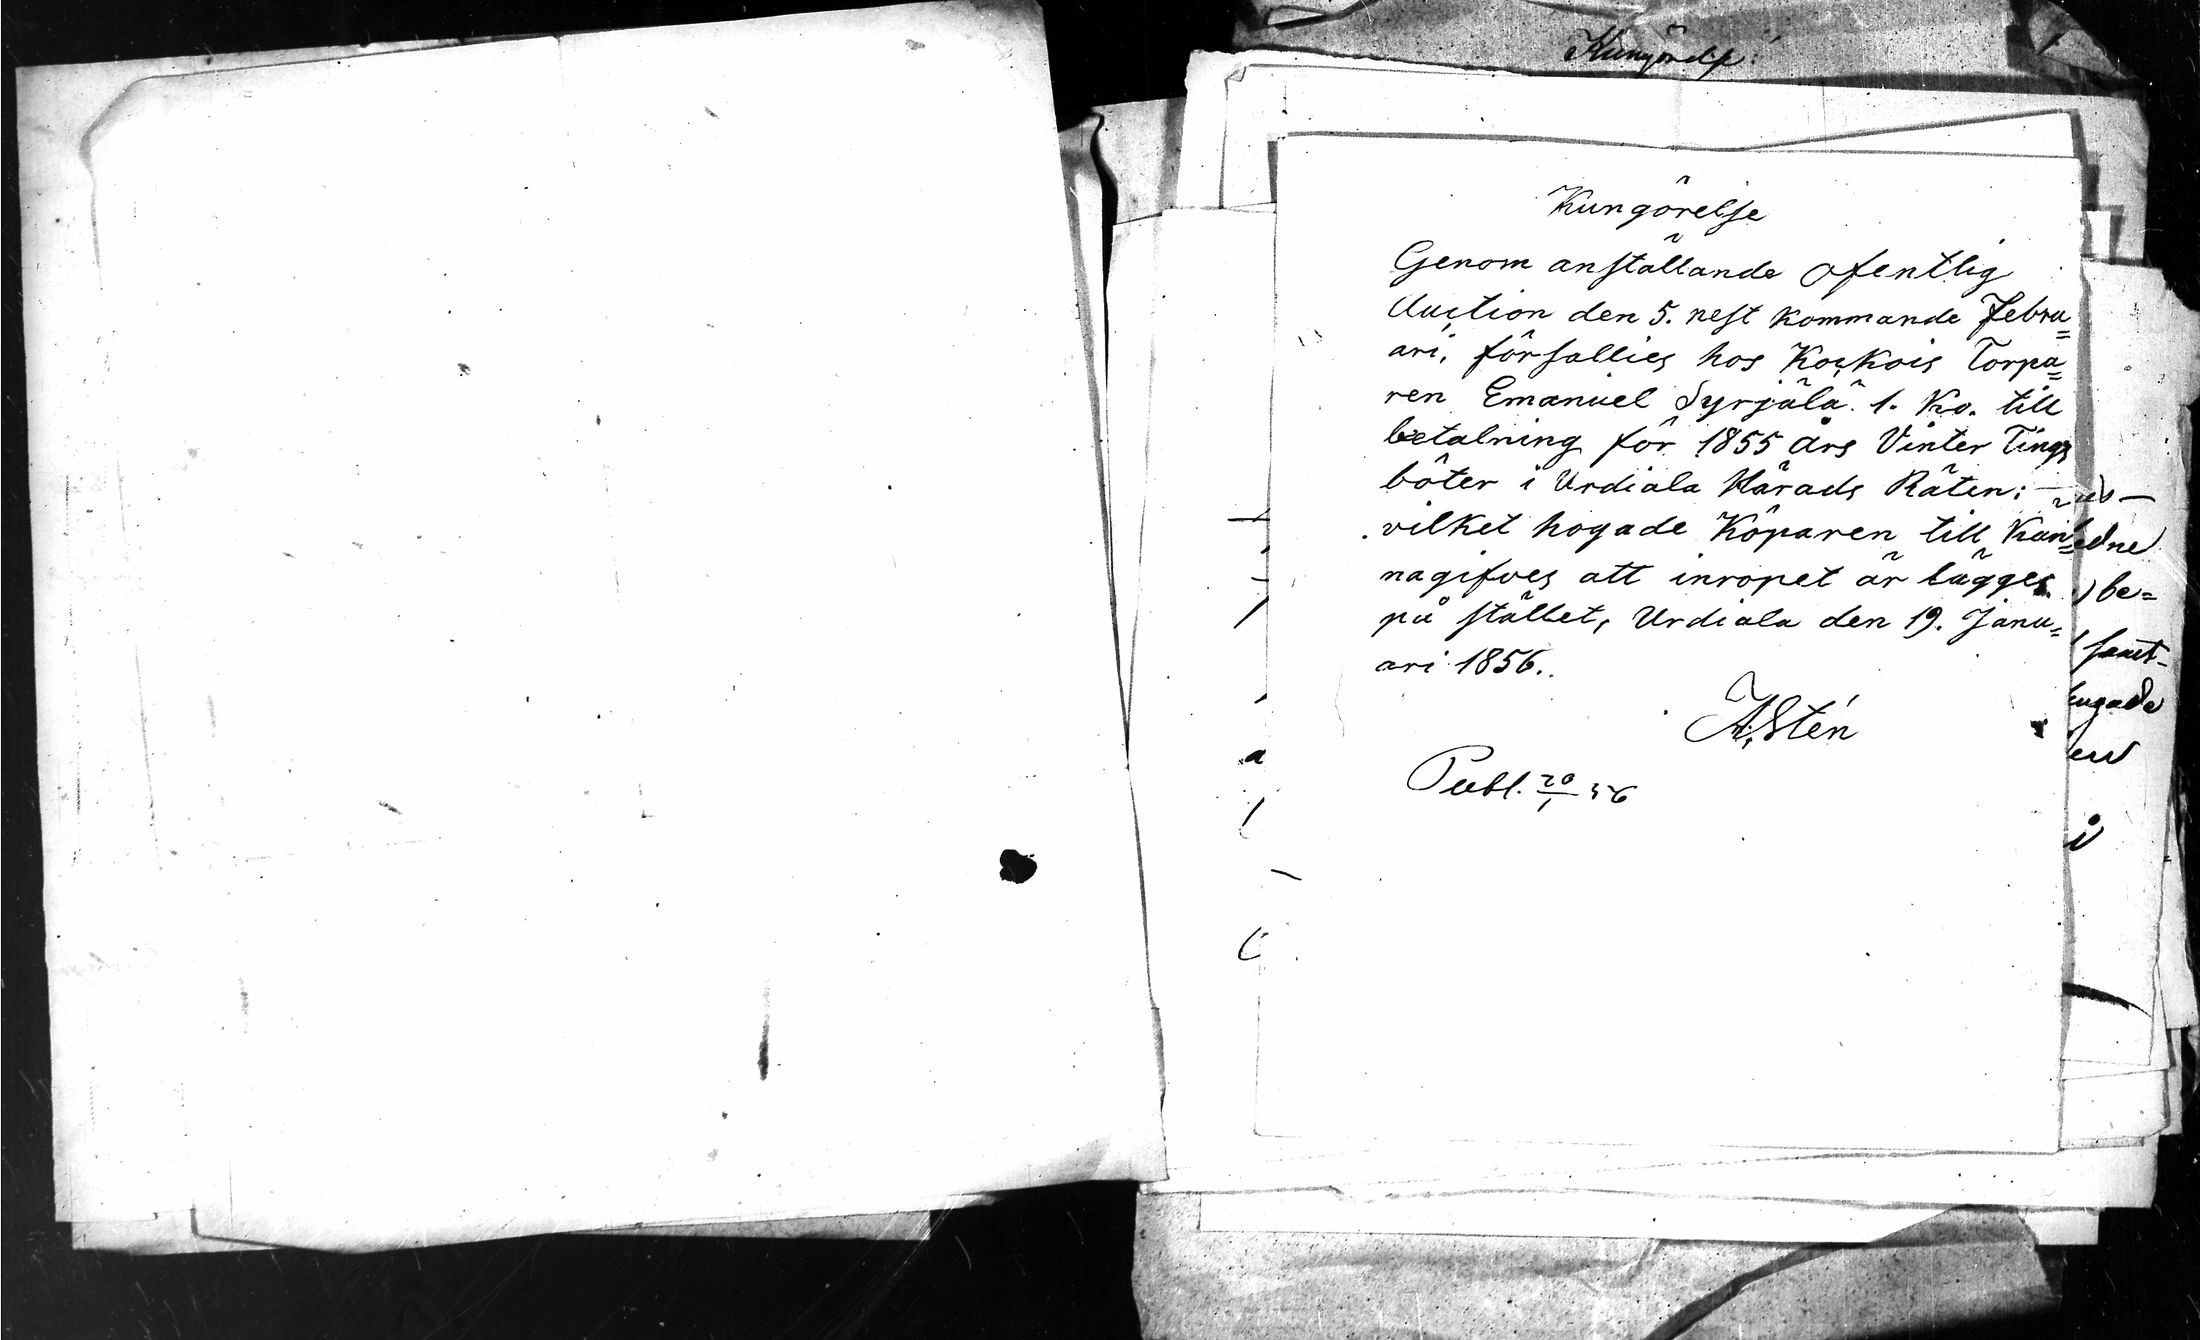 Kungörelse
Kungörelse
Genom anställande ofentlig
Auction den 5. nest kommande Febru=
ari, försallies hos Kockois Torpa=
ren Emanuel Syrjälä 1. Ko. till
betalning för 1855 års Vinter Tings
böter i Urdiala Härads Räten;
vilket hogade Köparen till Kän=
nagifves att inropet är lägges
på stället, Urdiala den 19. Janu=
ari 1856.
A, Stén
Publ. 20/1 56
be=
samt-